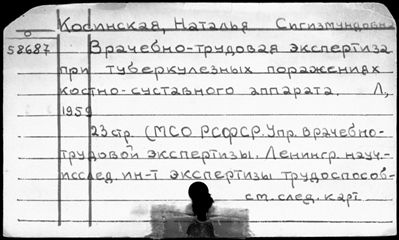 Косинская, Наталья Сигизмундовна
58687 Врачебно-трудовая экспертиза
при туберкулезных поражениях
костно-суставного аппарата. Л,
1959
23 стр. (МСО РСФСР. Упр. врачебно-
трудовой экспертизы. Ленингр. науч.-
исслед. ин-т экспертизы трудоспособ-
см. след. карт.